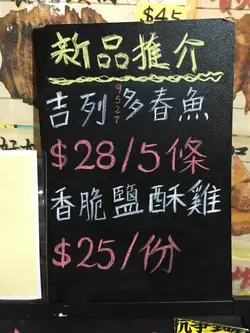 $45
新品推介
吉列多春魚
9527
$28/5條
香脆鹽酥雞
$25/份